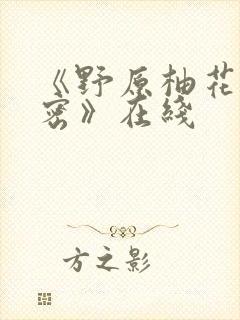 《野原柚花
密》在线
方之影